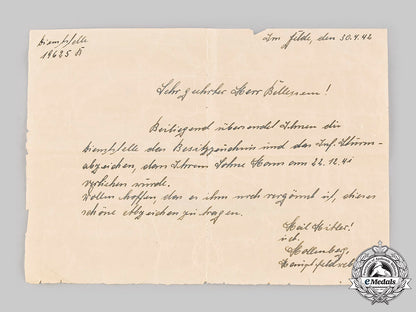 Dienststelle
18625 B
Im Felde, den 30.4.42
Sehr geehrter Herr Bellessem!
Beiliegend übersendet Ihnen die
Dienststelle das Besitzzeugnis und das Inf. Sturm-
abzeichen, dem Ihrem Sohne Hans am 22.12.41
verliehen wurde.
Wollen hoffen das es ihm noch vergönnt ist, dieses
schöne Abzeichen zu tragen.
Heil Hitler!
Hollenberg
Hauptfeldweb
eMedals